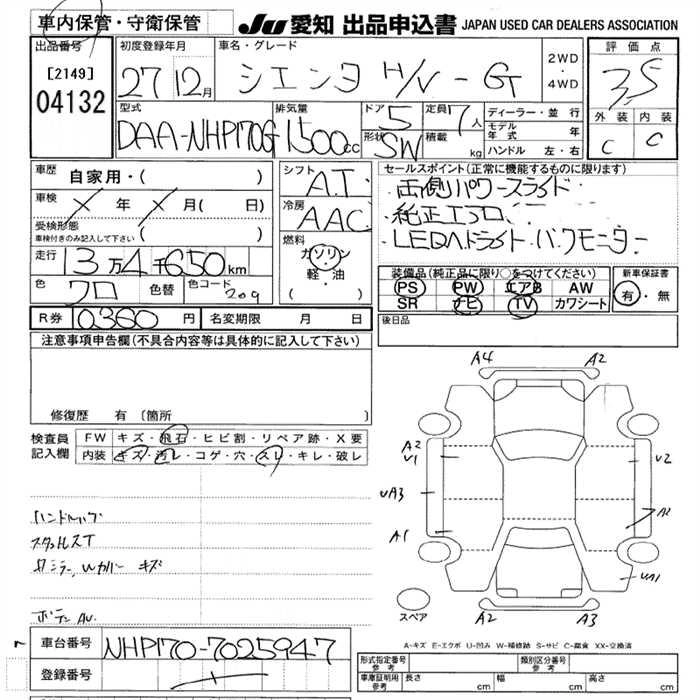 車内保管・守衛保管
JU 愛知 出品申込書 JAPAN USED CAR DEALERS ASSOCIATION
出品番号
[2149]
04132
初度登録年月
27 12月
車名・グレード
シエンタ H/V-G
2WD
・
4WD
評価点
3.5
外装 内装
C C
型式
DAA-NHP170G
排気量
1500cc
ドア 5
形状 SW
定員 7人
積載 kg
ディーラー・並行
モデル年式 年
ハンドル 左・右
車歴
自家用・( )
車検
X年 X月( 日)
受検形態
車検付きのみ記入して下さい ( )
走行
13万4千650km
色
クロ
色替
色コード
209
シフト
A.T.
冷房
AAC
燃料
ガソリン
・
軽・油
( )
セールスポイント(正常に機能するものに限ります)
・両側パワースライド
・純正エアロ、
・LEDヘッドライト・バックモニター
装備品(純正品に限り○をつけてください)
PS PW エアB AW
SR ナビ TV カワシート
新車保証書
有・無
R券 0360円
名変期限 月 日
後日品
注意事項申告欄(不具合内容等は具体的に記入して下さい)
修復歴 有 〔箇所
検査員
記入欄
FW キズ・飛石・ヒビ割・リペア跡・X要
内装 キズ・汚レ・コゲ・穴・スレ・キレ・破レ
ハンドルハゲ
スタッドレスT
キズ
A4 A2
A2
U1
U2
UA3
A1
A2
UA1
スペア
A2 A3
A-キズ E-エクボ U-凹み W-補修跡 S-サビ C-腐食 XX-交換済
車台番号
NHP170-7025947
登録番号
形式指定番号
参考
類別区分番号
参考
車庫証明用
参考
長さ cm
幅 cm
高さ cm